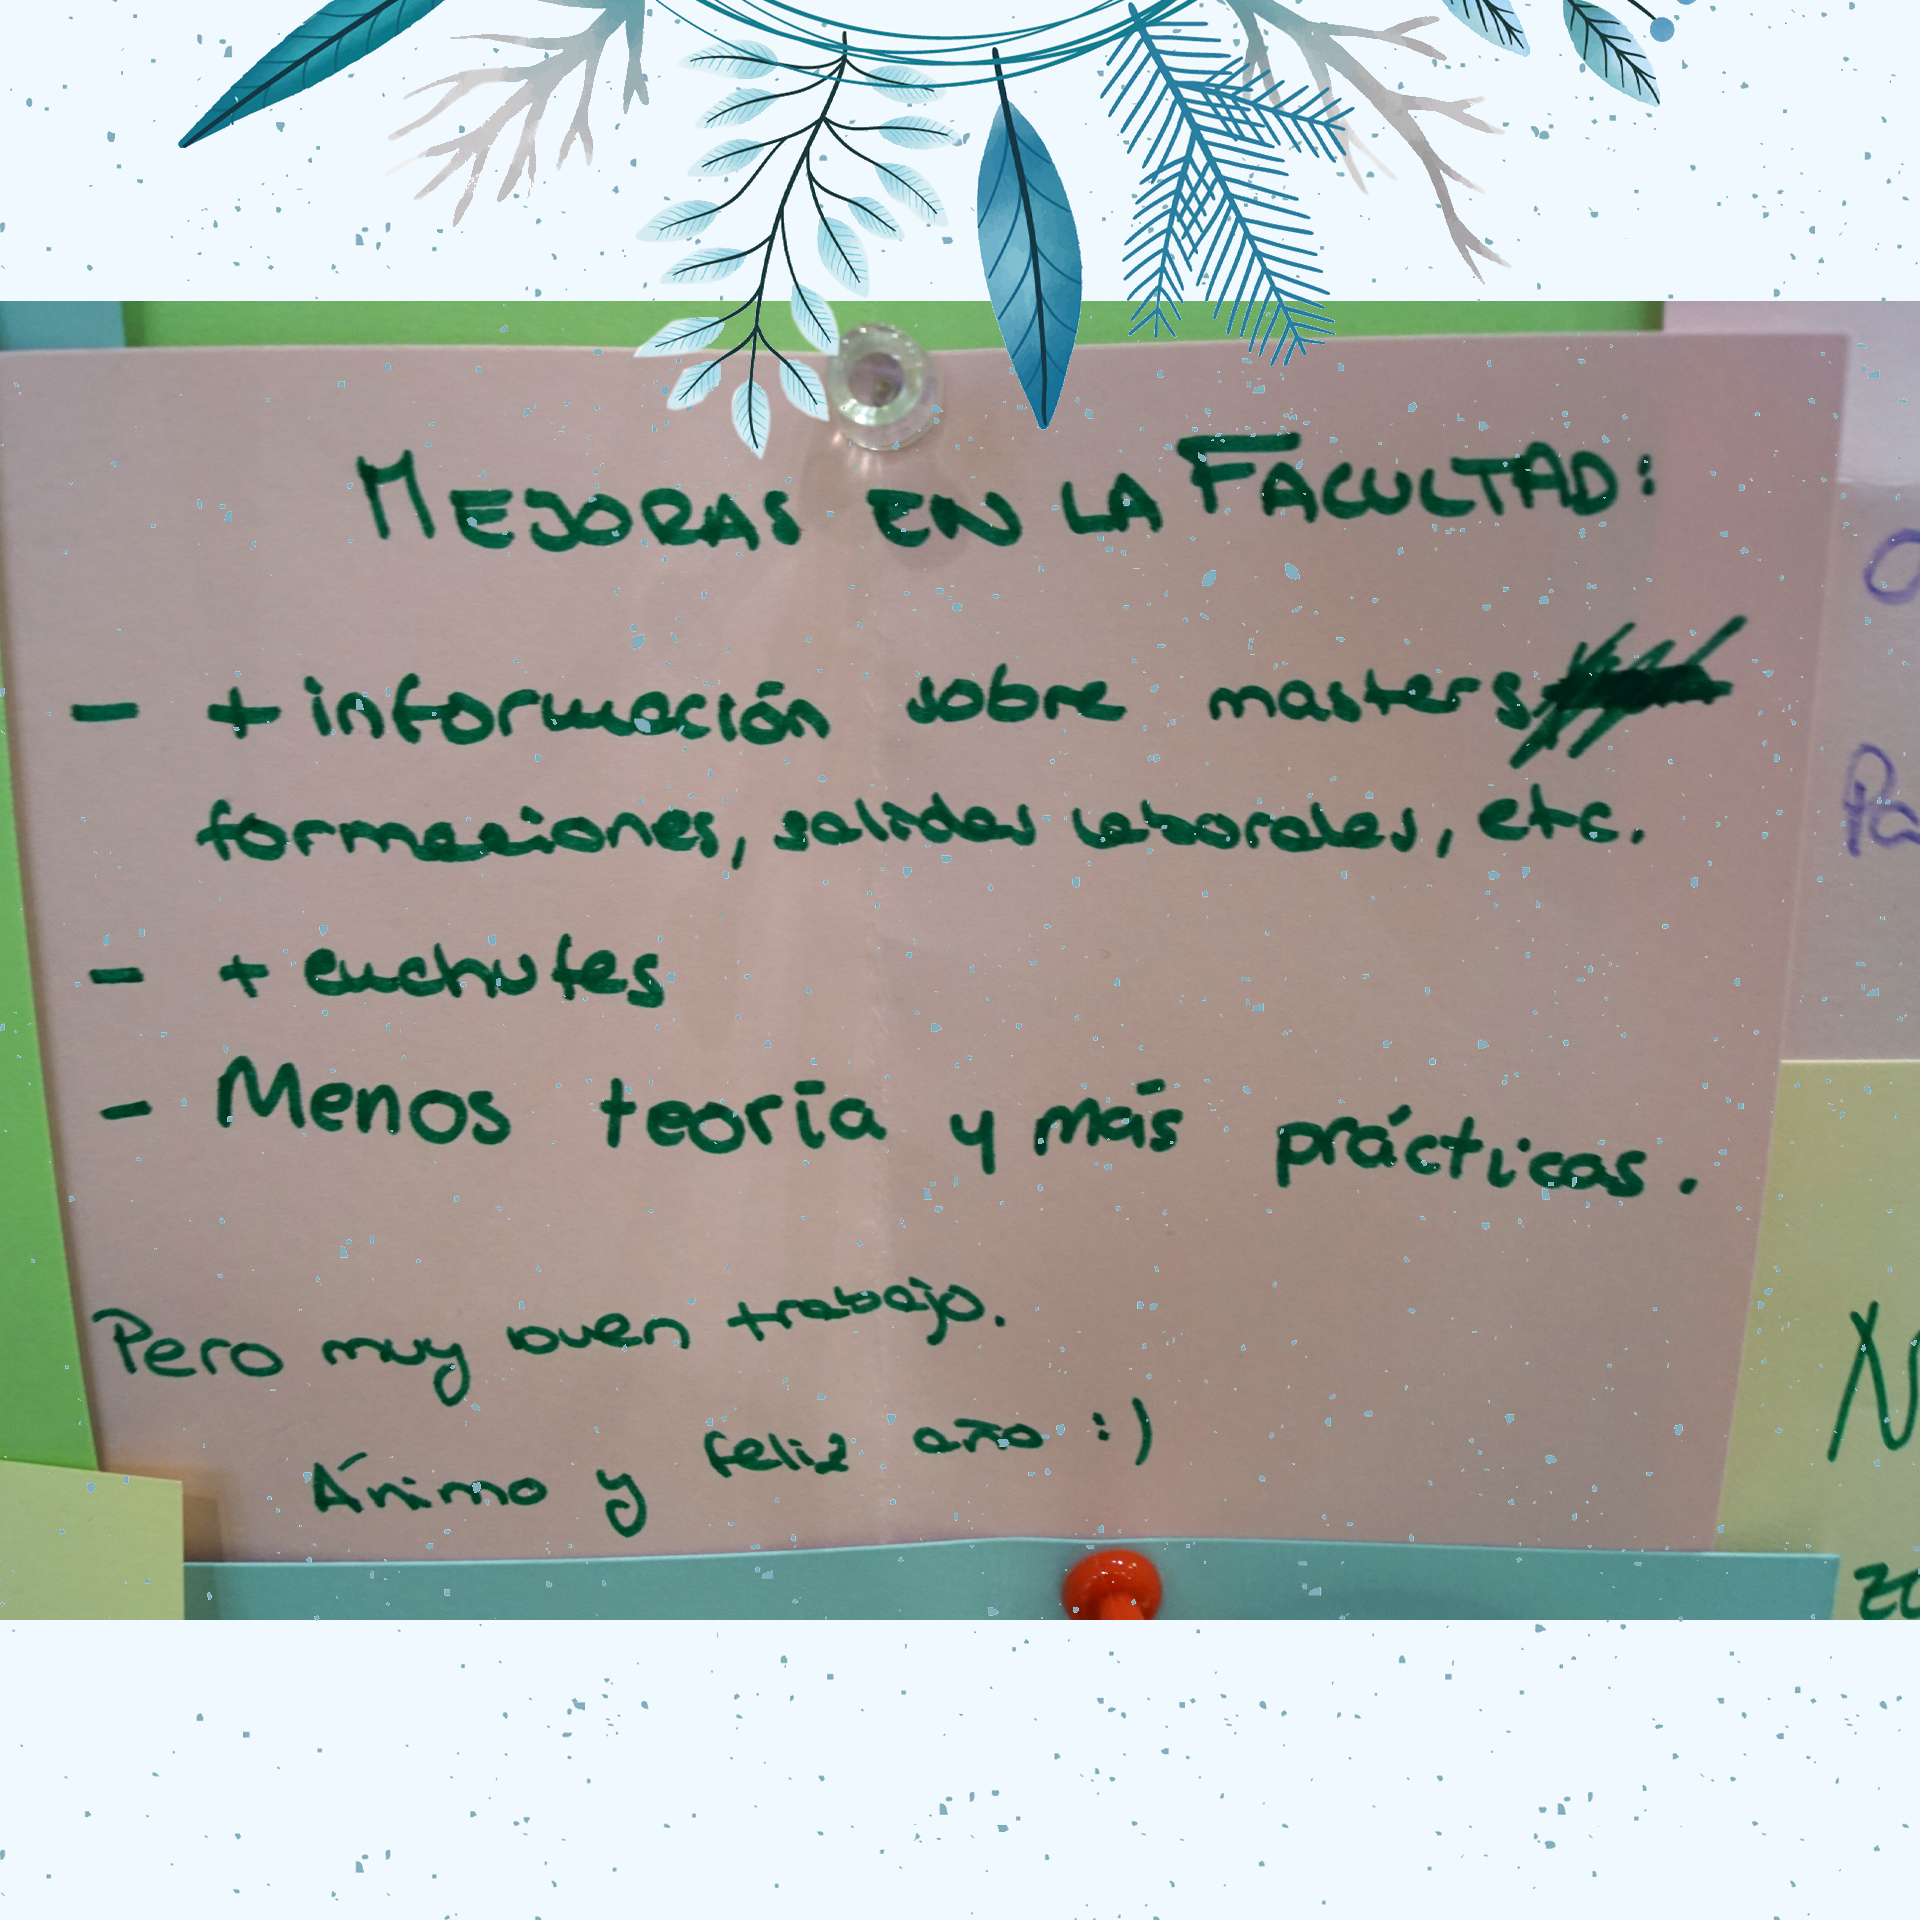 MEJORAS EN LA FACULTAD:
- + información sobre masters
formaciones, salidas laborales, etc.
- + enchufes
- Menos teoría y más prácticas.
Pero muy buen trabajo.
Ánimo y feliz año :)